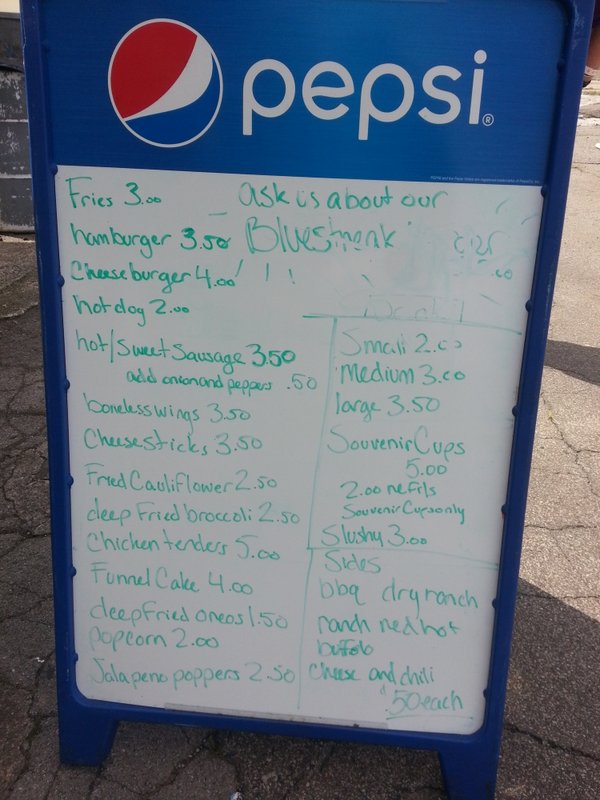 pepsi
Fries 3.00
hamburger 3.50
Cheeseburger 4.00
hotdog 2.00
hot/Sweet Sausage 3.50
add onion and peppers .50
boneless wings 3.50
Cheese sticks 3.50
Fried Cauliflower 2.50
deep fried broccoli 2.50
Chicken tenders 5.00
Funnel Cake 4.00
deep fried oreos 1.50
popcorn 2.00
Jalapeno poppers 2.50
ask us about our
!!!
Small 2.00
Medium 3.00
large 3.50
Souvenir Cups
5.00
2.00 refils
Souvenir Cups only
Slushy 3.00
Sides
bbq dry ranch
ranch red hot
bufolo
Cheese and chili
.50 each